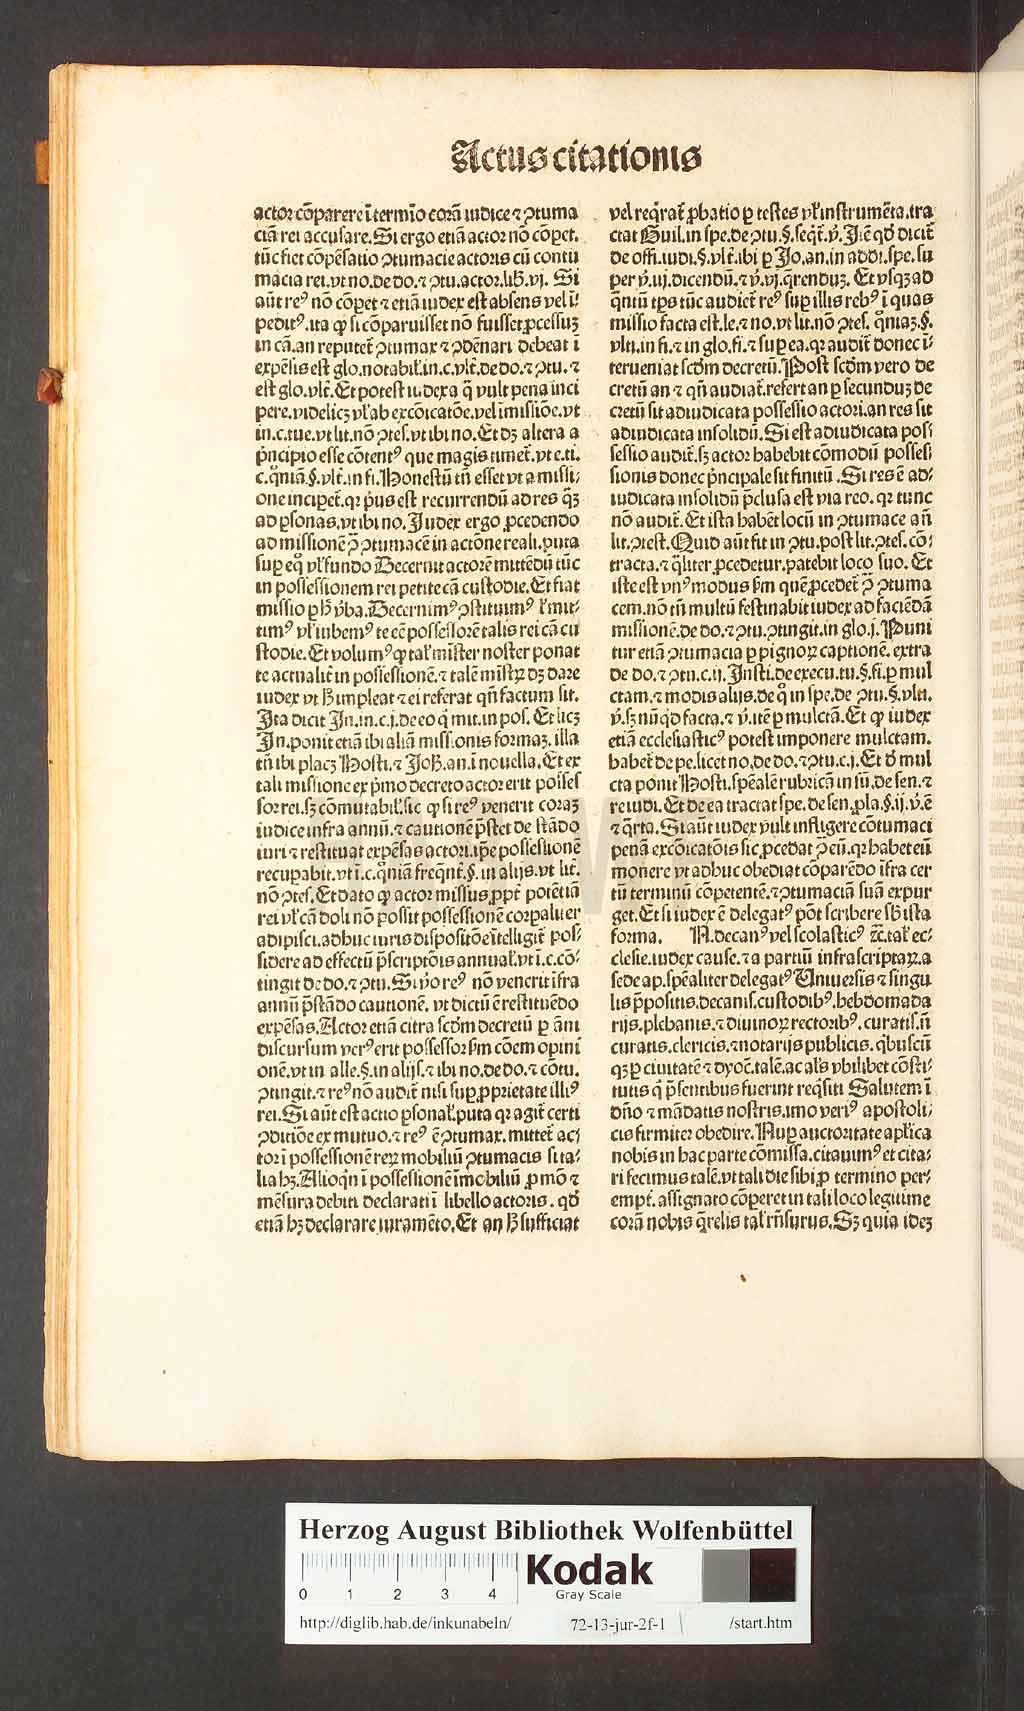 Actus citationis
actor cōparere ī termīo corā iudice ⁊ ꝯtuma
ciā rei accusare. Si ergo etiā actor nō cōpet.
tūc fiet cōpēsatio ꝯtumacie actoris cū contu
macia rei. vt no. de do. ⁊ ꝯtu. actor. lib. vj. Si
aūt reꝰ nō cōpet ⁊ etiā iudex est absens vel ī
peditꝰ. ita ꝙ si cōparuisset nō fuisset ꝓcessuꝫ
in cā. an reputet ꝯtumax ⁊ ꝯdēnari debeat ī
expēsis est glo. notabił. in. c. vlt̄. de do. ⁊ ꝯtu. ⁊
est glo. vlt̄. Et potest iudex a q̄ vult pena inci
pere. videlicꝫ vł ab excōicatōe. vel imissiōe. vt
in. c. tue. vt lit. nō ꝯtes. vt ibi no. Et dꝫ altera a
p̄ncipio esse cōtentꝰ que magis timet. vt e. ti.
c. qm̄iā. §. vlt̄. in fi. Honestū tn̄ esset vt a missi
one incipet. qꝛ pͥus est recurrendū ad res qͣꝫ
ad ꝑsonas. vt ibi no. Iudex ergo ꝓcedendo
ad missionē ꝯͣ ꝯtumacē in actōne reali. puta
suꝑ eqͦ vł fundo Decernit actorē mittēdū tūc
in possessionem rei petite cā custodie. Et fiat
missio ꝑ hͨ v̄ba. Decernimꝰ ꝯstituimꝰ ł mit-
timꝰ vł iubemꝰ te eē possessorē talis rei cā cu
stodie. Et volumꝰ ꝙ tał mīster noster ponat
te actualit̄ in possessionē. ⁊ talē mīstꝝ dꝫ dare
iudex vt hͨ impleat ⁊ ei referat qn̄ factum sit.
Ita dicit In. in. c. j. de eo qͥ mit. in pos. Et licꝫ
In. ponit etiā ibi aliā missionis formaꝫ. illa
tn̄ ibi placꝫ Hosti. ⁊ Joh. an. ī nouella. Et ex
tali missione ex pͥmo decreto actor erit posses
sor rei. sꝫ cōmutabił. sic ꝙ si reꝰ venerit coraꝫ
iudice infra annū. ⁊ cautionē p̄stet de stādo
iuri ⁊ restituat expēsas actori. ipē possessionē
recupabit. vt ī. c. qm̄iā freq̄nt̄. §. in alijs. vt lit.
nō ꝯtes. Et dato ꝙ actor missus ꝓpt̄ potētiā
rei vł cā doli nō possit possessionē corꝑaliter
adipisci. adhuc iuris dispositōe ītelligit̄ pos-
sidere ad effectū p̄scriptōis annual. vt ī. c. cō-
tingit de do. ⁊ ꝯtu. Si v̄o reꝰ nō venerit īfra
annū p̄stādo cautionē. vt dictū ē restituēdo
expēsas. Actor etiā citra scd̄m decretū ꝑ āni
discursum verꝰ erit possessor ſm cōem opini
onē. vt in alle. §. in alijs. ⁊ ibi no. de do. ⁊ cōtu.
ꝯtingit. ⁊ reꝰ nō audit̄ nisi suꝑ ꝓprietate illiꝰ
rei. Si aūt est actio ꝑsonał. puta qꝛ agit̄ certi
ꝯditiōe ex mutuo. ⁊ reꝰ ē ꝯtumax. mittet̄ ac-
tor ī possessionē reꝝ mobiliū ꝯtumacis si ta-
lia hꝫ. Alioqͥn ī possessionē īmobiliū ꝓ mō ⁊
mēsura debiti declarati ī libello actoris. qd̄
etiā hꝫ declarare iuramēto. Et an hͨ sufficiat
vel reqͥrat̄ ꝓbatio ꝑ testes vł instrumēta. tra
ctat Guil. in spe. de ꝯtu. §. seqt̄. v̄. Itē qd̄ dicit̄
de offi. iudi. §. vlt̄. ibi ꝑ Jo. an. in addi. spe. su
per v̄. iij. dicendū. ⁊ v̄. vj. q̄renduꝫ. Et vsqꝫ ad
qͣntū tꝑs tūc audiet̄ reꝰ suꝑ illis rebꝰ ī quas
missio facta est. le. ⁊ no. vt lit. nō ꝯtes. qm̄iaꝫ. §.
vlti. in fi. ⁊ in glo. fi. ⁊ suꝑ ea. qꝛ audit̄ donec ī-
terueniat scd̄m decretū. Post scd̄m vero de
cretū an ⁊ qn̄ audiat̄. refert an ꝑ secunduꝫ de
cretū sit adiudicata possessio actori. an res sit
adiudicata insolidū. Si est adiudicata pos-
sessio audit̄. sꝫ actor habebit cōmodū posses-
sionis donec p̄ncipale sit finitū. Si res ē ad-
iudicata insolidū p̄clusa est via reo. qꝛ tunc
nō audit̄. Et ista habēt locū in ꝯtumace an̄
lit. ꝯtest. Quid aūt fit in ꝯtu. post lit. ꝯtes. cō-
tracta. ⁊ qͣliter ꝓcedetur. patebit loco suo. Et
iste est vnꝰ modus ſm quē ꝓcedet̄ ꝯͣ ꝯtuma
cem. nō tn̄ multū festinabit iudex ad faciēdā
missionē. de do. ⁊ ꝯtu. ꝯtingit. in glo. j. Puni
tur etiā ꝯtumacia ꝑ pignoꝝ captionē. extra
de do. ⁊ ꝯtu. c. ij. Insti. de execu. tu. §. fi. ꝑ mul
ctam. ⁊ modis alijs. de qͦ in spe. de ꝯtu. §. vlti.
v̄. sꝫ nūqd facta. ⁊ v̄. itē ꝑ mulctā. Et ꝙ iudex
etiā ecclesiasticꝰ potest imponere mulctam.
habet̄ de pe. licet no. de do. ⁊ ꝯtu. c. j. Et d̄ mul
cta ponit Hosti. spēalē rubricā in sū. de sen. ⁊
re iudi. Et de ea tractat spe. de sen. ꝓla. §. ij. v̄. ē
⁊ qͣrta. Si aūt iudex vult infligere cōtumaci
penā excōicatōis sic ꝓcedat ꝯͣ eū. qꝛ habet eū
monere vt adhuc obediat cōparēdo īfra cer
tū terminū cōpetentē. ⁊ ꝯtumaciā suā expur
get. Et si iudex ē delegatꝰ pōt scribere sb̄ ista
forma. N. decanꝰ vel scolasticꝰ ⁊c̄. tał ec-
clesie. iudex cause. ⁊ a partiū infrascriptaꝝ. a
sede ap. spēaliter delegatꝰ Vniuersis ⁊ singu
lis p̄positis. decanis. custodibꝰ. hebdomada
rijs. plebanis. ⁊ diuinoꝝ rectoribꝰ. curatis. n̄
curatis. clericis. ⁊ notarijs publicis. qͥbuscū
qꝫ ꝑ ciuitatē ⁊ dyoc̄. talē. ac ał̄s vbilibet cōsti-
tutis qͥ p̄sentibus fuerint reqͥsiti Salutem ī
dn̄o ⁊ mādatis nostris. imo veriꝰ apostoli-
cis firmiter obedire. Nuꝑ auctoritate apl̄ica
nobis in hac parte cōmissa. citauimꝰ et cita-
ri fecimus talē. vt tali die sibi ꝓ termino per-
empt̄. assignato cōperet in tali loco legitime
corā nobis q̄relis tał rn̄surus. Sꝫ quia ideꝫ
Herzog August Bibliothek Wolfenbüttel
0 1 2 3 4
Kodak
Gray Scale
http://diglib.hab.de/inkunabeln/ 72-13-jur-2f-1 /start.htm